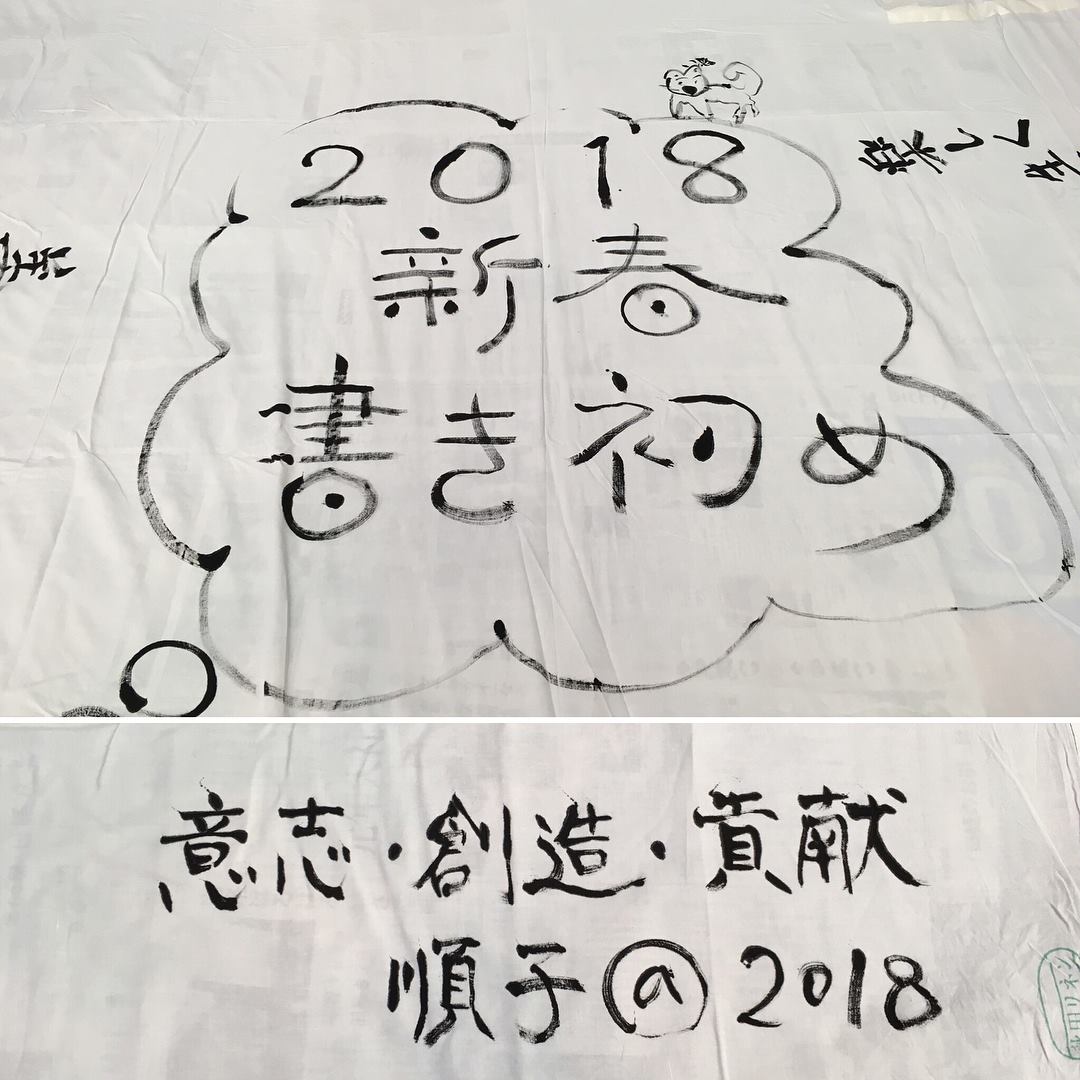 2018
新春
書き初め
楽しく生
意志・創造・貢献
順子@2018